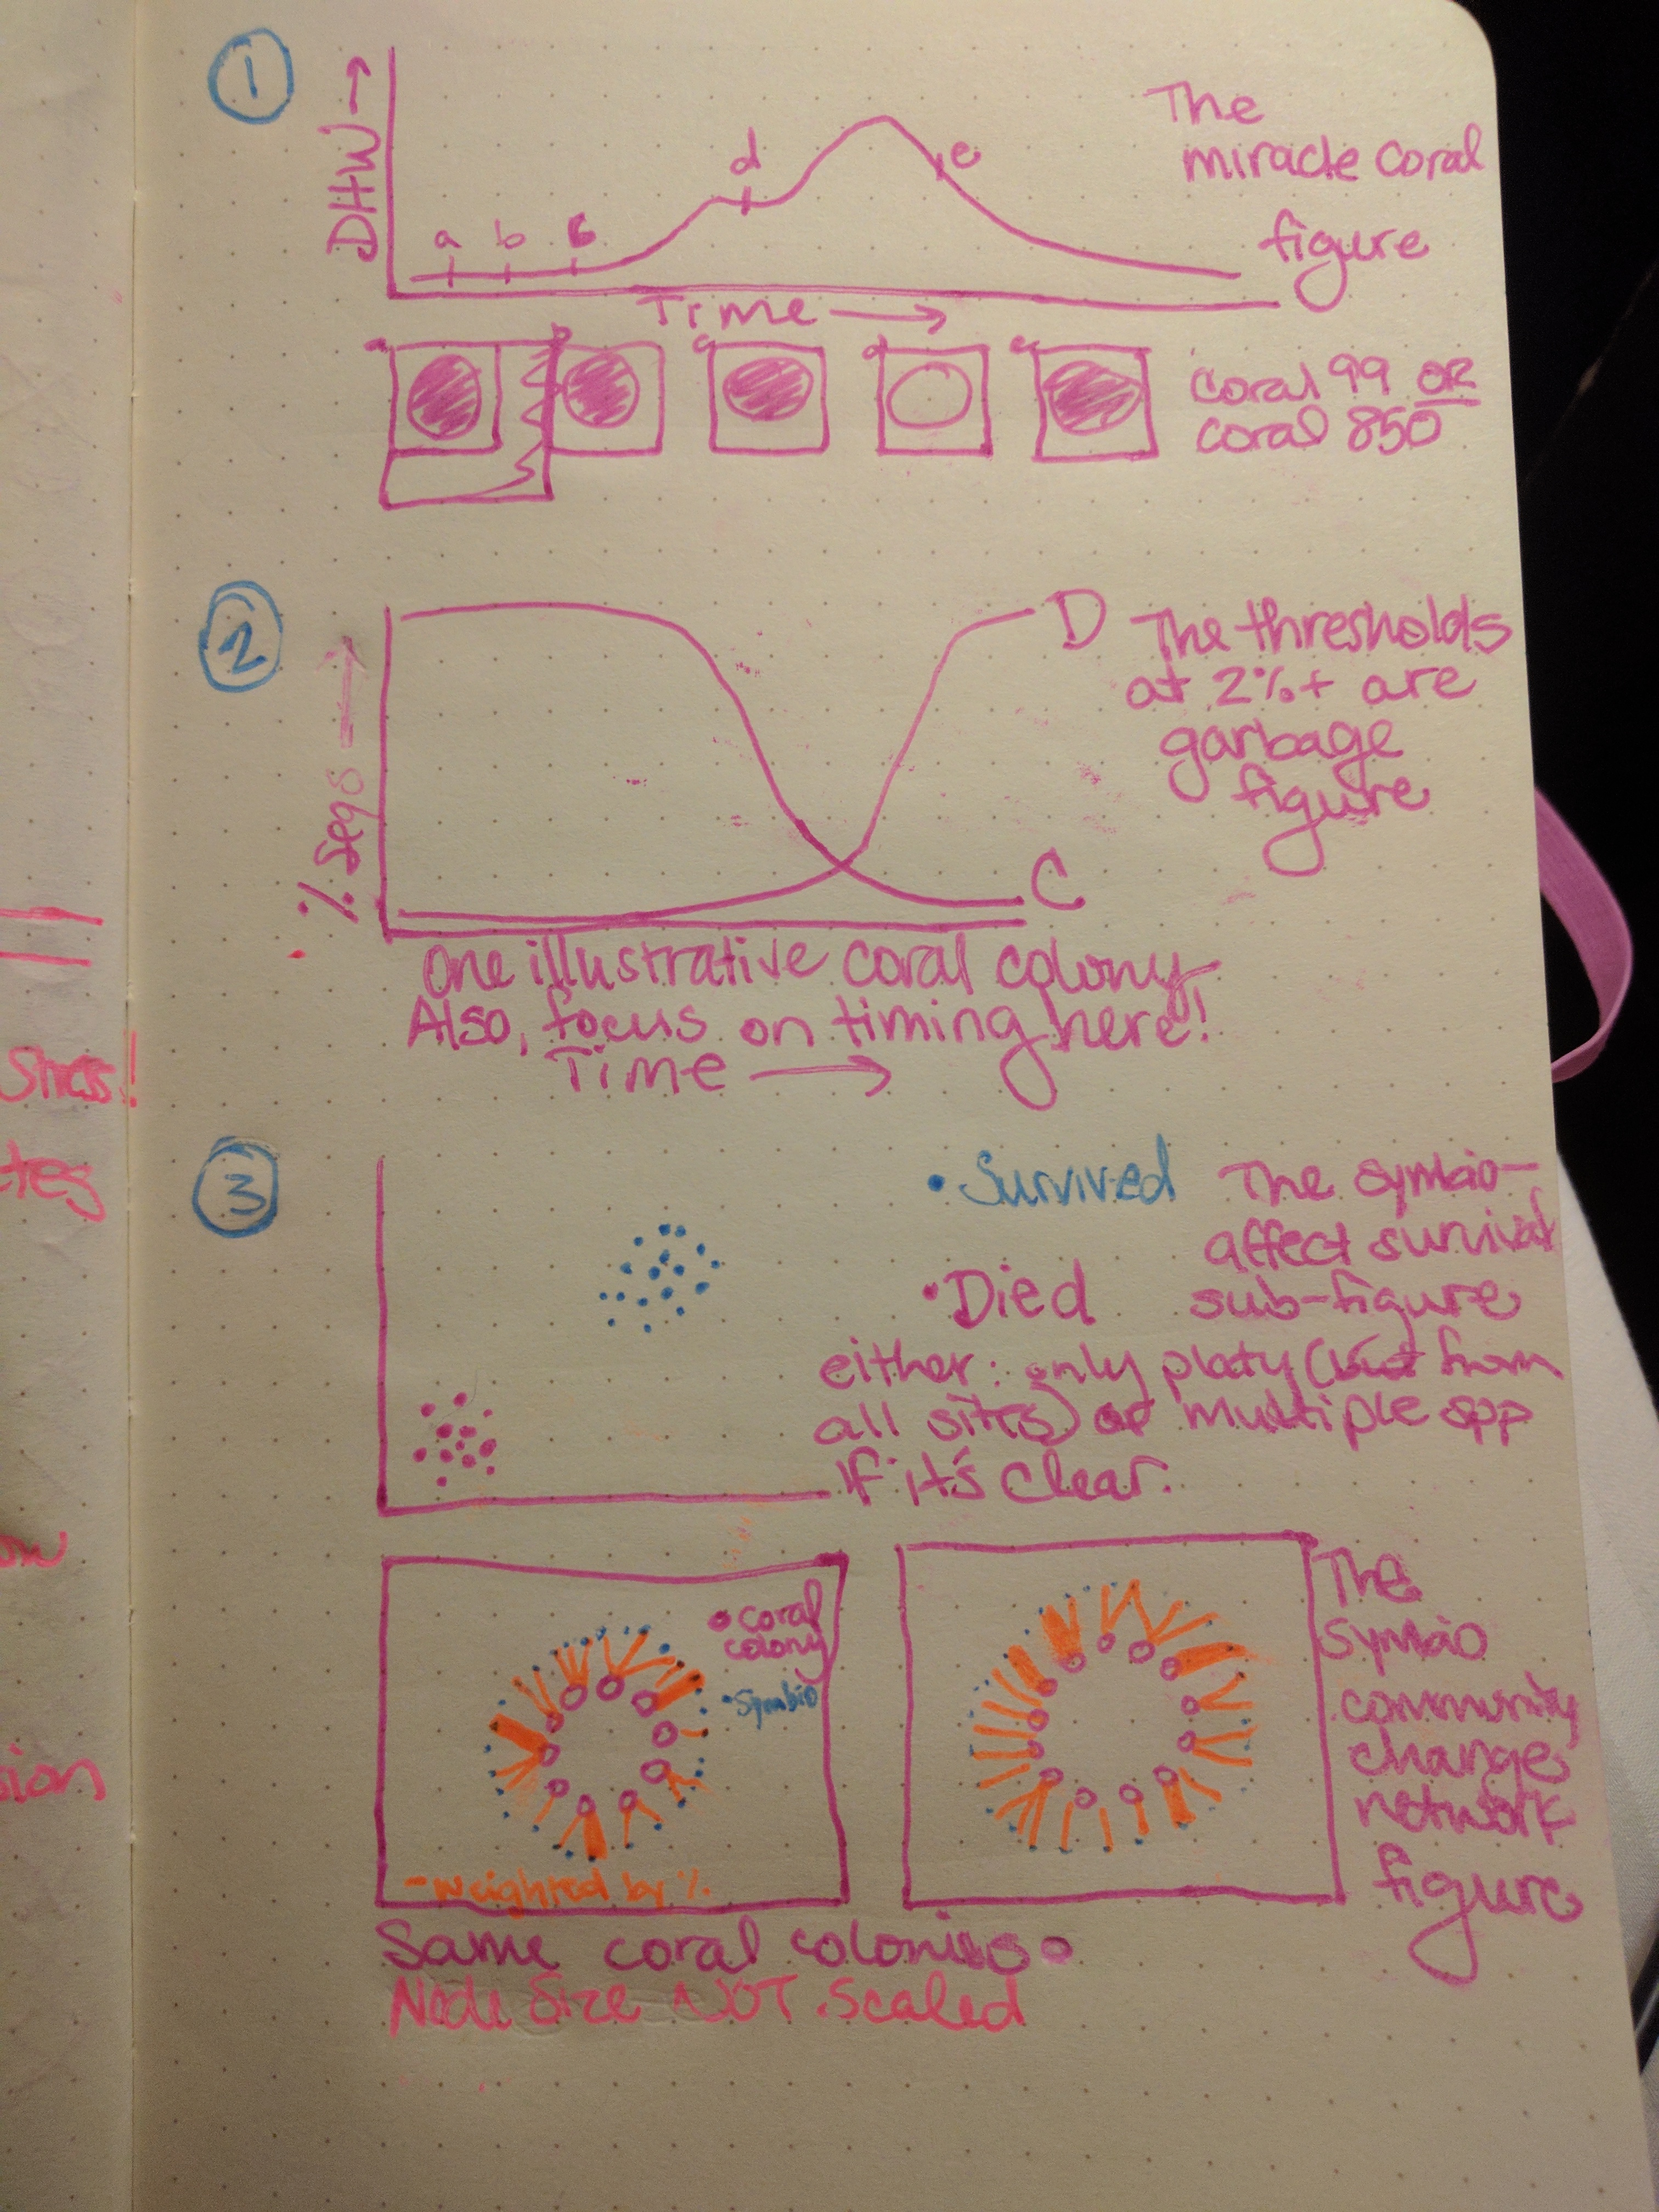 1
DHW →
a b c
d
e
The
miracle coral
figure
Time →
a b c d e
coral 99 OR
coral 850
2
% seqs →
D
C
The thresholds
at 2%+ are
garbage
figure
One illustrative coral colony
Also, focus on timing here!
Time →
3
• Survived
• Died
The symbio-
affect survival
sub-figure
either: only platy (but from
all sites) or multiple spp
if it's clear.
• coral
colony
• Symbio
- weighted by %
The
symbio
community
change
network
figure
Same coral colonies
Node Size NOT scaled
stress!
tes
ow
sion